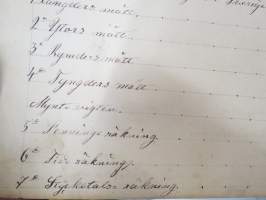 Längders mått
2º Ytors mått
3º Rymders mått
4º Tyngders mått
Mynt vigten
5º Pennings räkning
6º Tids räkning
7º Styckotals räkning.